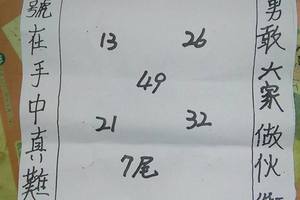 勇敢大家做伙
13 26
49
21 32
7尾
號在手中真難